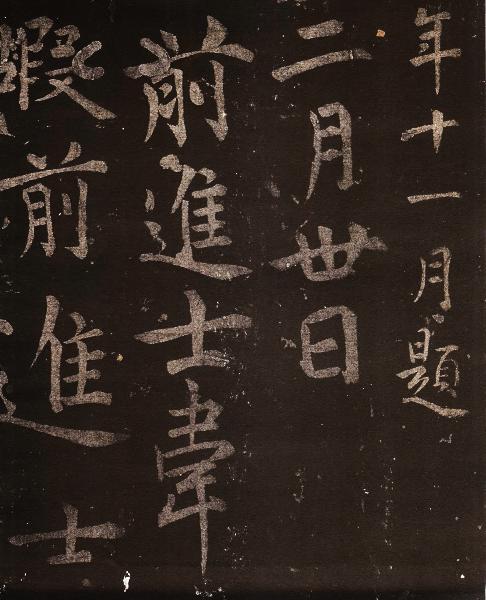 年十一月題
二月卅日
前進士韋
嘏前進士